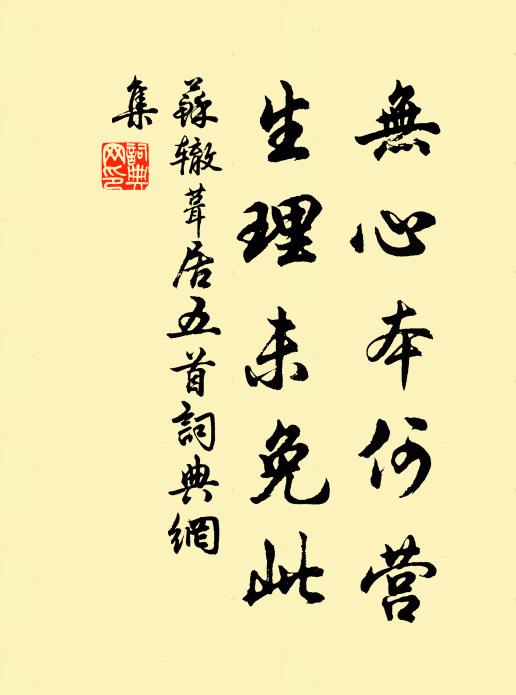 無心本何營
生理未免此
蘇辙葺居五首詞典網
集
詞典
网印